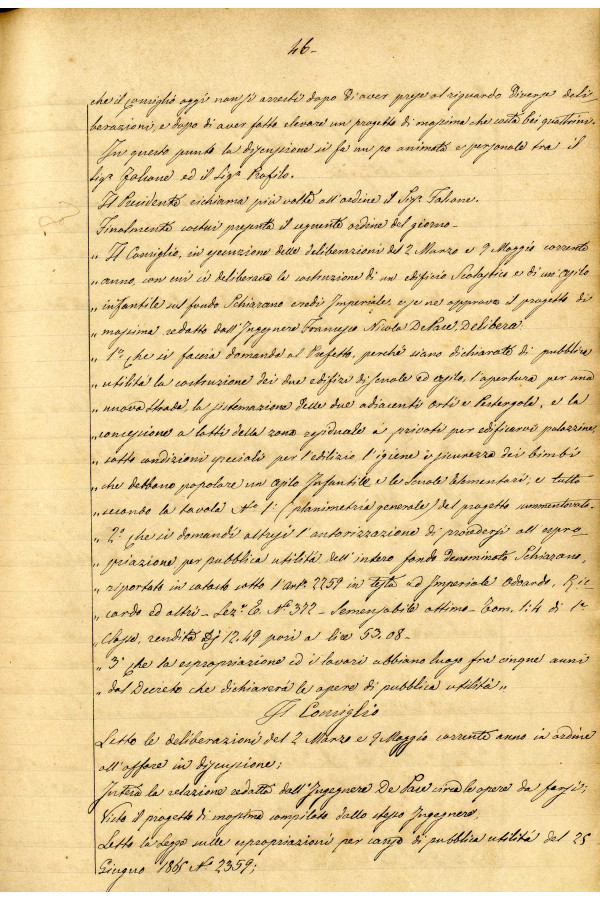 46-
che il Consiglio oggi non si arresti dopo di aver prese al riguardo diverse deli-
berazioni, e dopo di aver fatto elevare un progetto di massima che costa bei quattrini.
In questo punto la discussione si fa un po animata e personale tra il
Sigr Falcone ed il Sigr Profilo.
Il Presidente richiama più volte all'ordine il Sigr Falcone.
Finalmente costui presenta il seguente ordine del giorno-
„ Il Consiglio, in esecuzione delle deliberazioni del 2 Marzo e 9 Maggio corrente
„ anno, con cui si deliberava la costruzione di un edificio Scolastico e di un Asilo
„ infantile sul fondo Schizzano eredi Imperiale, e se ne approva il progetto di
„ massima redatto dall'Ingegnere Francesco Nicola De Pace, Delibera
„ 1º che si faccia domanda al Prefetto, perché siano dichiarate di pubblica
„ utilità la costruzione dei due edifizi di scuole ed asilo, l'apertura per una
„ nuova strada, la sistemazione delle due adiacenti Orti e Pestergola, e la
„ concessione a lotti della zona residuale a privati per edificarvi palazzine,
„ sotto condizioni speciali per l'edilizio l'igiene e sicurezza dei bimbi
„ che debbano popolare un Asilo Infantile e le Scuole Elementari; e tutto
„ secondo la tavola Nº 1: (planimetria generale) del progetto summentovato.
„ 2º che si domandi altresì l'autorizzazione di procedersi all'espro-
„ priazione per pubblica utilità dell'intero fondo denominato Schizzano,
„ riportato in catasto sotto l'artº 2259 in testa ad Imperiale Odoardo, Ric-
cardo ed altri - Sezº E. Nº 372 - Semensabile ottimo - Tom. 1:4 di 1ª
Classe, rendita 12.49 pari a lire 53.08-
„ 3º che la espropriazione ed i lavori abbiano luogo fra cinque anni
„ dal Decreto che dichiarerà le opere di pubblica utilità „
Il Consiglio
Letto le deliberazioni del 2 Marzo e 9 Maggio corrente anno in ordine
all'affare in discussione;
Intesa la relazione redatta dall'Ingegnere De Pace circa le opere da farsi;
Visto il progetto di massima compilato dallo stesso Ingegnere;
Letto la legge sulle espropriazioni per causa di pubblica utilità del 25
Giugno 1865 Nº 2359;